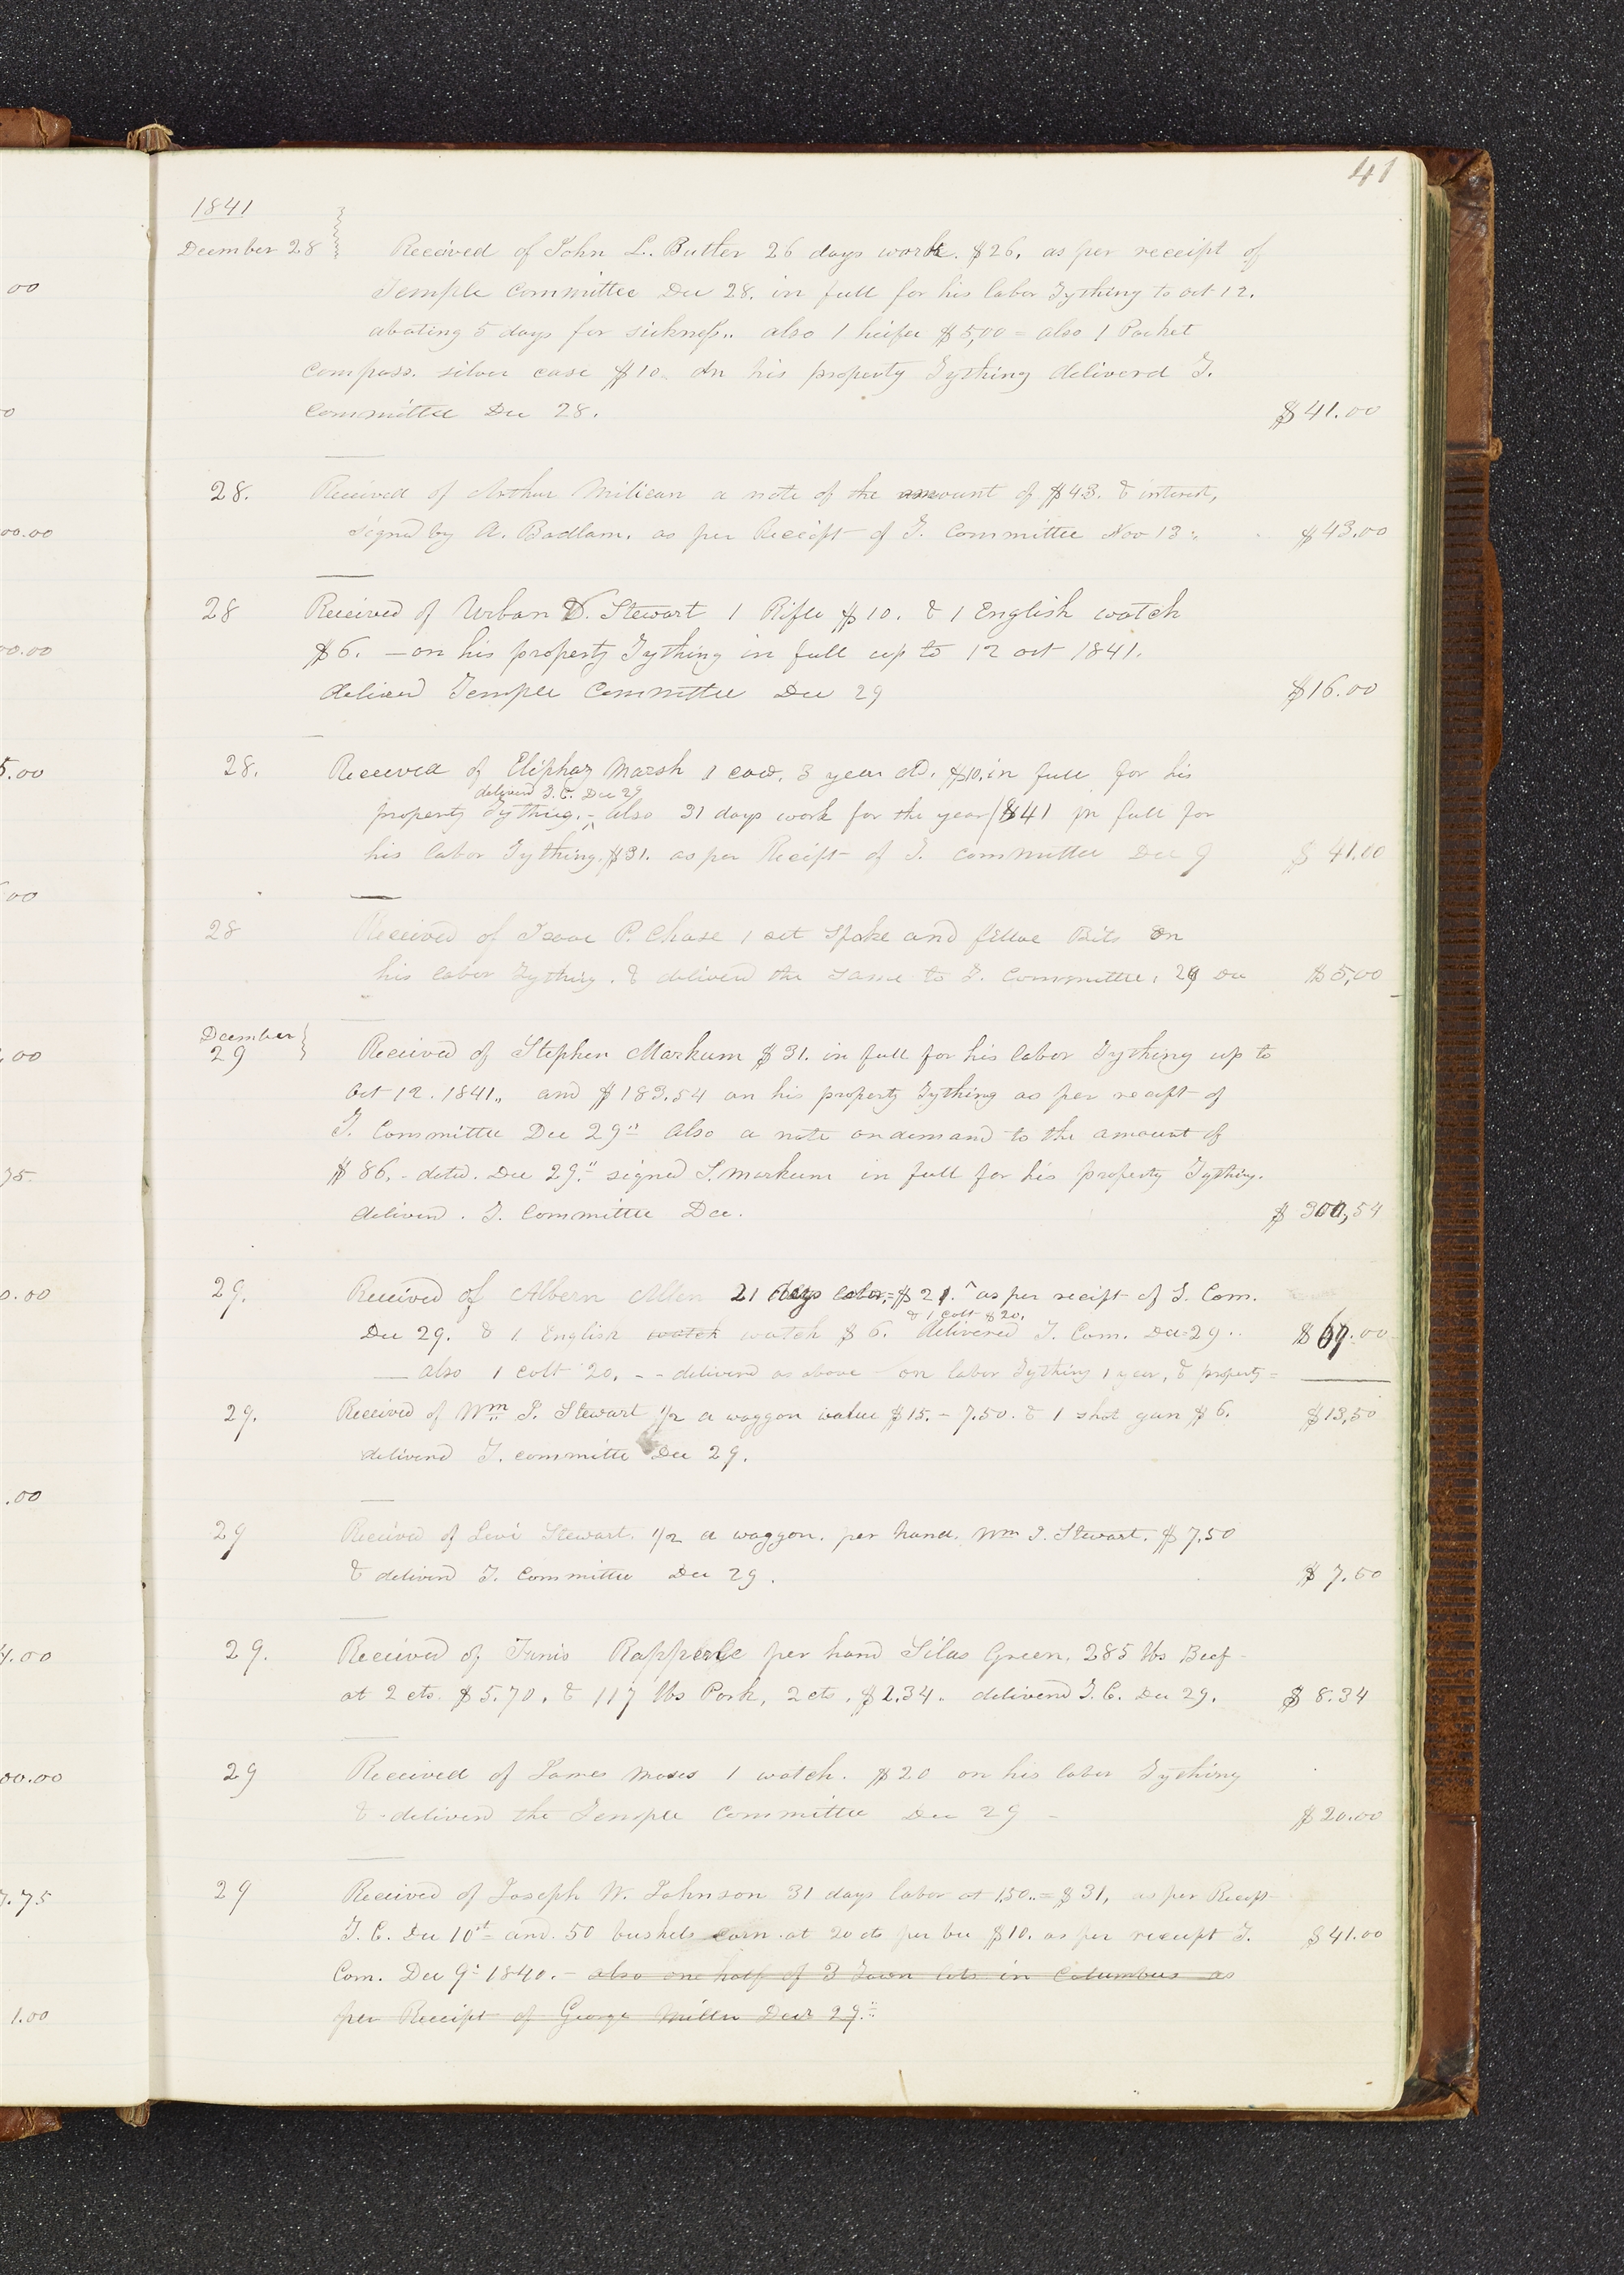 41
1841
December 28 Received of John L. Butler 26 days work. $26. as per receipt of
Temple Committee Dec 28. in full for his labor Tything to oct 12.
abating 5 days for sickness.. also 1 heifer $5,00 = also 1 Pocket
Compass. silver case $10. on his property Tything deliverd T.
Committee Dec 28. $41.00
28. Received of Arthur Milican a note of the amount of $43. & interest,
signed by A. Badlam. as per Receipt of T. Committee Nov 13. $43.00
28 Received of Urban V. Stewart 1 Rifle $10. & 1 English watch
$6. — on his property Tything in full up to 12 oct 1841.
deliverd Temple Committee Dec 29 $16.00
28. Received of Eliphaz Marsh 1 cow. 3 year old. $10. in full for his
deliverd T.C. Dec 29
property Tything. - also 31 days work for the year 1841 in full for
his labor Tything. $31. as per Receipt of T. committee Dec 9 $41.00
28 Received of Isaac P. Chase 1 set Spoke and felloe Bits on
his labor Tything. & deliverd the same to T. Committee. 29 Dec $5,00
December
29 Received of Stephen Markum $31. in full for his labor Tything up to
Oct 12. 1841,, and $183.54 on his property Tything as per receipt of
T. Committee Dec 29" also a note on demand to the amount of
$86. - dated. Dec 29." signed S. Markum in full for his property Tything.
deliverd. T. Committee Dec. $300,54
29. Received of Albern Allen 21 days labor, = $21. ^ as per receipt of T. Com.
& 1 colt $20.
Dec 29. & 1 English watch watch $6. delivered T. Com. Dec 29.. $ .00
— also 1 colt 20. - - deliverd as above - on labor Tything 1 year, & property =
29. Received of Wm J. Stewart 1/2 a waggon value $15. - 7.50. & 1 shot gun $6. $13,50
deliverd T. committe Dec 29.
29 Received of Levi Stewart. 1/2 a waggon. per hand. Wm J. Stewart. $7,50
& deliverd T. Committee Dec 29. $7.50
29. Received of Tunis Rapperlle per hand Silas Green. 285 lbs Beef
at 2 cts. $5.70. & 117 lbs Pork, 2 cts. $2.34. deliverd T.C. Dec 29. $8.34
29 Received of James Moses 1 watch. $20 on his labor Tything
& deliverd the Temple Committee Dec 29 - $20.00
29 Received of Joseph W. Johnson 31 days labor at 1,50.. = $31, as per Receipt
T.C. Dec 10th and 50 bushels corn at 20 cts per bu $10. as per receipt T. $41.00
Com. Dec 9" 1840. - also one half of 3 Town lots in Columbus as
per Receipt of George Miller Decr 29."
00
0
00.00
00.00
5.00
00
.00
75
0.00
.00
4.00
00.00
7.75
1.00